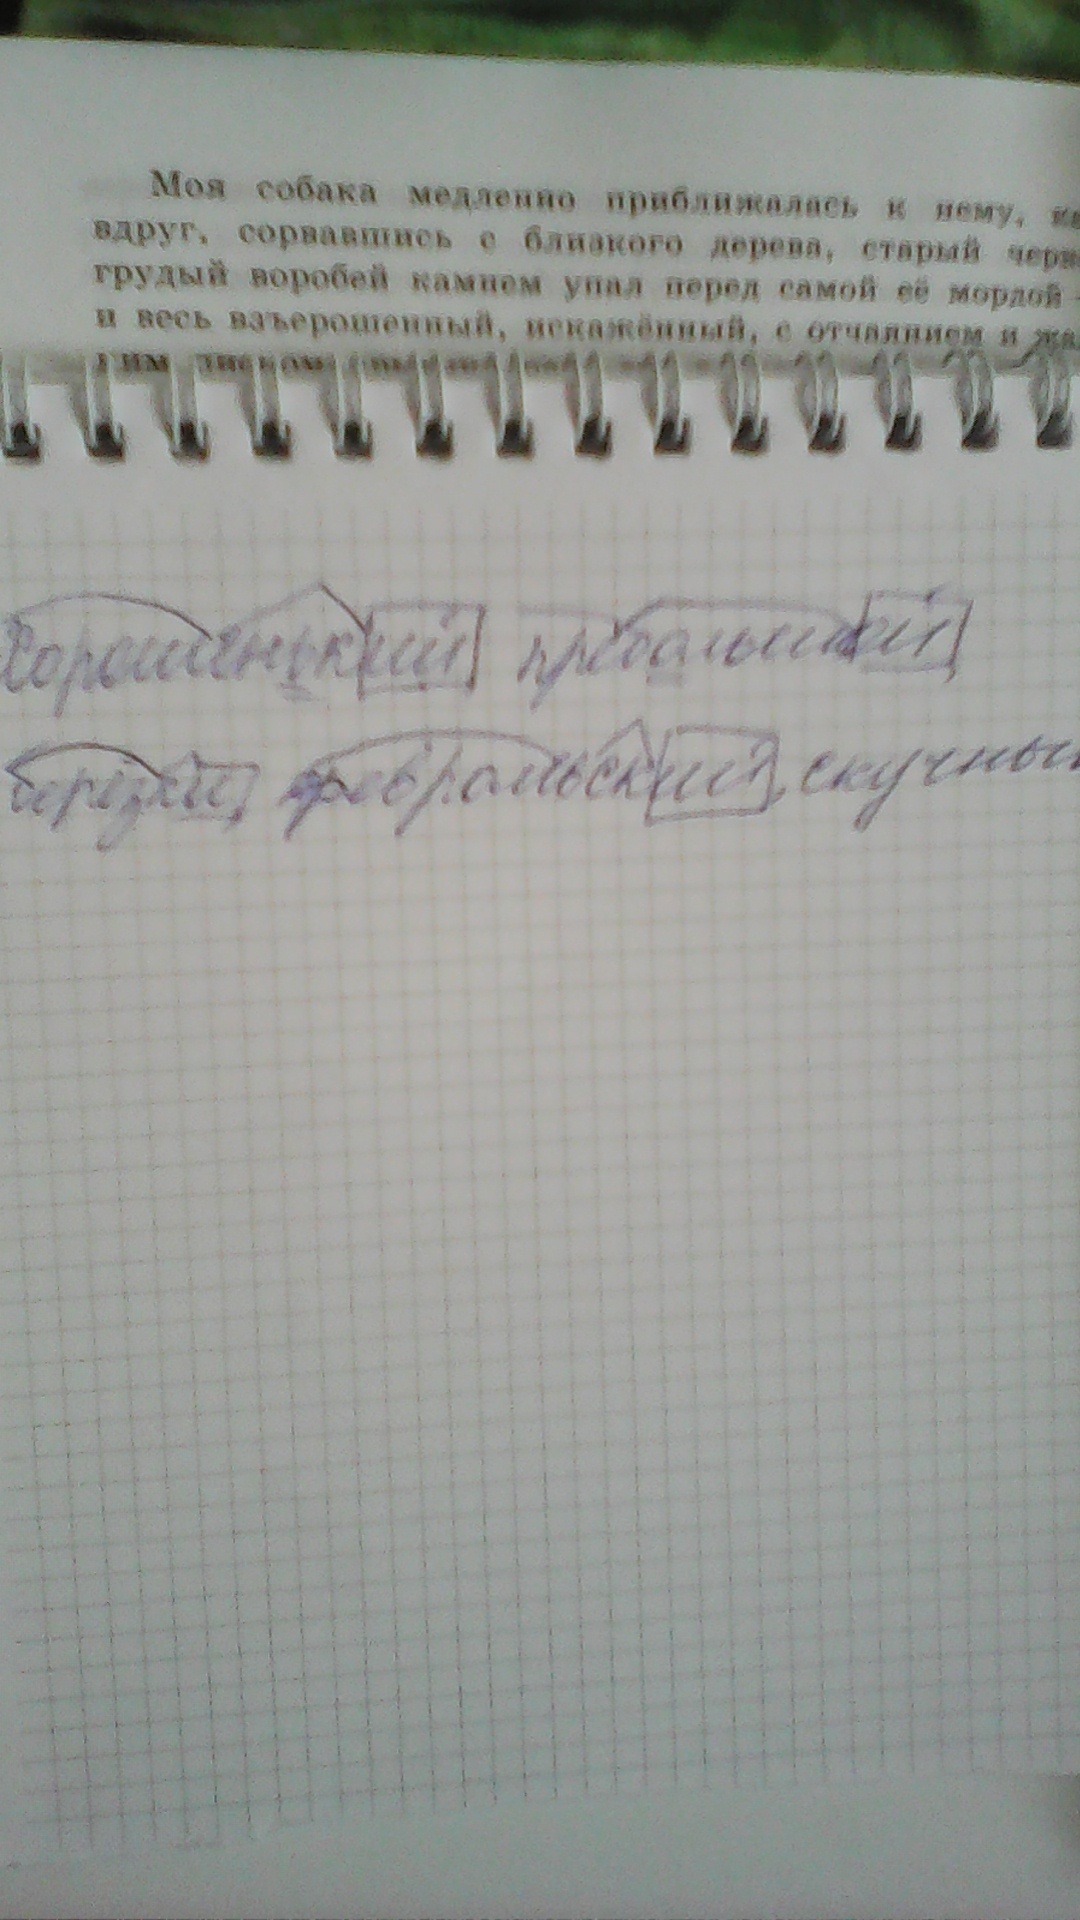 Моя собака медленно приближалась к нему,
вдруг, сорвавшись с близкого дерева, старый черн
грудый воробей камнем упал перед самой её мордой -
и весь взъерошенный, искажённый, с отчаянием и жа
Хорошенький пребольшой
февральский, скучный